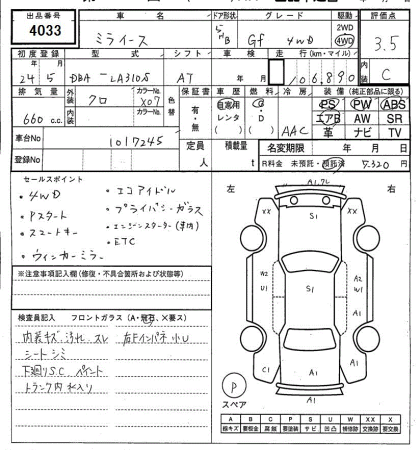 出品番号 車名 ドア形状 グレード 駆動 評価点
4033 ミライース 5ドア HB Gf 4WD 2WD 4WD 3.5
初度登録 型式 シフト 車検 走行(km・マイル) 内装
24年5月 DBA-LA310S AT 年 月 106,890 C
排気量 外装 カラーNo. 色替 保証書 車歴 燃料 冷房 装備(純正部品に限る)
660 c.c. クロ X07 有・無 自家用 レンタ G・D AAC PS PW ABS
内装 カラーNo. エアB AW SR
革 ナビ TV
車台No 1017245 定員 人 積載量 t 名変期限 年 月 日
登録No R料金 未預託・預託済 7,320円
セールスポイント
・4WD ・エコアイドル
・Pスタート ・プライバシーガラス
・スマートキー ・エンジンスターター(車内)
・ウィンカーミラー ・ETC
※注意事項記入欄(修復・不具合箇所および状態等)
検査員記入 フロントガラス(A・飛石、X要ス)
内装キズ 汚れ スレ 右Fインパネ小U
シートシミ
下廻りS.C ペイント
トランク内 入り
左 右
A1
XX S1 XX
W2 U1 S1 A2 W1 A1
C1 A1 A1
A1
P
スペア
A B C P S U W X XX
線キズ 要板金 腐蝕 要塗装 サビ 凹凸 補修跡 交換跡 要交換